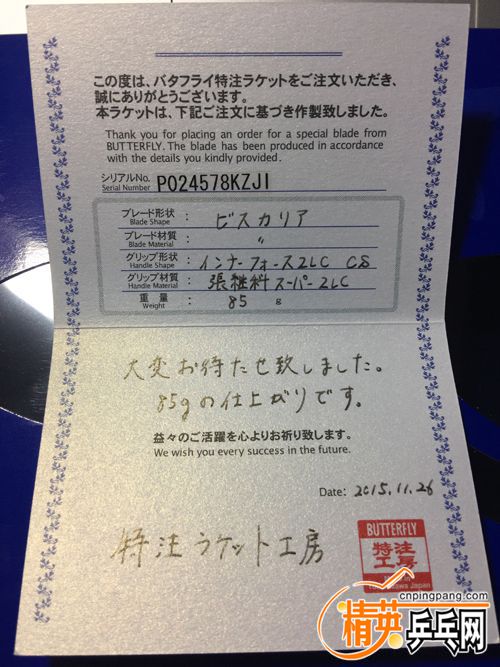 この度は、バタフライ特注ラケットをご注文いただき、
誠にありがとうございます。
本ラケットは、下記ご注文に基づき作製致しました。
Thank you for placing an order for a special blade from
BUTTERFLY. The blade has been produced in accordance
with the details you kindly provided.
シリアルNo.
Serial Number
P024578KZJI
ブレード形状 : ビスカリア
Blade Shape
ブレード材質 : 〃
Blade Material
グリップ形状 : インナーフォースZLC CS
Handle Shape
グリップ材質 : 張継科スーパーZLC
Handle Material
重量 : 85 g
Weight
大変お待たせ致しました。
85gの仕上がりです。
益々のご活躍を心よりお祈り致します。
We wish you every success in the future.
Date: 2015.11.26
特注ラケット工房
BUTTERFLY
特注
工房
Japan
cnpingpang.com
精英乒乓网